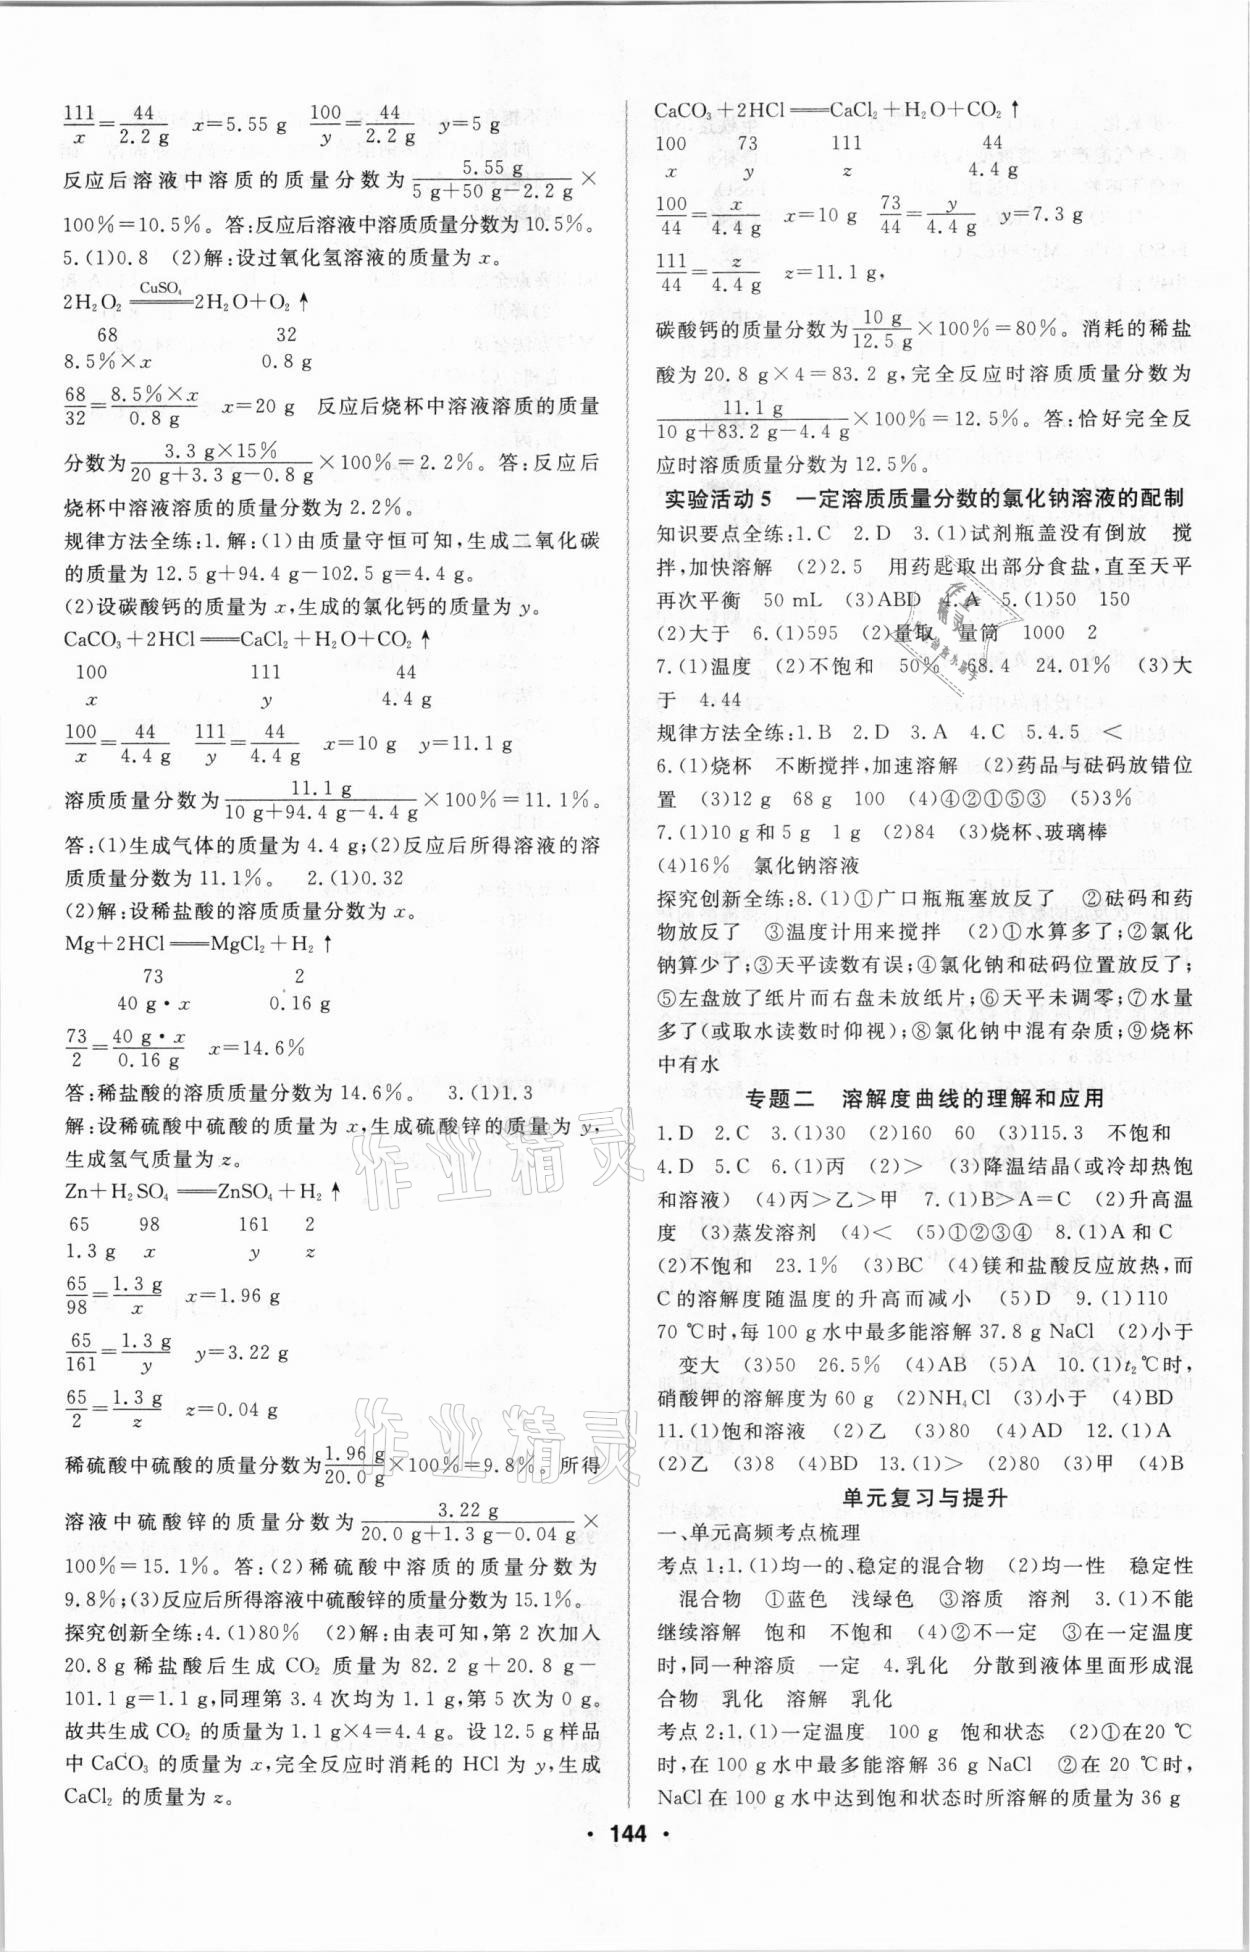 111/x=44/2.2 g　x=5.55 g　100/y=44/2.2 g　y=5 g
反应后溶液中溶质的质量分数为5.55 g/(5 g+50 g-2.2 g)×
100%=10.5%。答:反应后溶液中溶质质量分数为10.5%。
5.(1)0.8　(2)解:设过氧化氢溶液的质量为x。
2H₂O₂ CuSO₄═══ 2H₂O+O₂↑
68　32
8.5%×x　0.8 g
68/32=8.5%×x/0.8 g　x=20 g　反应后烧杯中溶液溶质的质量
分数为3.3 g×15%/(20 g+3.3 g-0.8 g)×100%=2.2%。答:反应后
烧杯中溶液溶质的质量分数为2.2%。
规律方法全练:1.解:(1)由质量守恒可知,生成二氧化碳
的质量为12.5 g+94.4 g-102.5 g=4.4 g。
(2)设碳酸钙的质量为x,生成的氯化钙的质量为y。
CaCO₃+2HCl═══CaCl₂+H₂O+CO₂↑
100　111　44
x　y　4.4 g
100/x=44/4.4 g　111/y=44/4.4 g　x=10 g　y=11.1 g
溶质质量分数为11.1 g/(10 g+94.4 g-4.4 g)×100%=11.1%。
答:(1)生成气体的质量为4.4 g;(2)反应后所得溶液的溶
质质量分数为11.1%。　2.(1)0.32
(2)解:设稀盐酸的溶质质量分数为x。
Mg+2HCl═══MgCl₂+H₂↑
73　2
40 g·x　0.16 g
73/2=40 g·x/0.16 g　x=14.6%
答:稀盐酸的溶质质量分数为14.6%。　3.(1)1.3
解:设稀硫酸中硫酸的质量为x,生成硫酸锌的质量为y,
生成氢气质量为z。
Zn+H₂SO₄═══ZnSO₄+H₂↑
65　98　161　2
1.3 g　x　y　z
65/98=1.3 g/x　x=1.96 g
65/161=1.3 g/y　y=3.22 g
65/2=1.3 g/z　z=0.04 g
稀硫酸中硫酸的质量分数为1.96 g/20.0 g×100%=9.8%。所得
溶液中硫酸锌的质量分数为3.22 g/(20.0 g+1.3 g-0.04 g)×
100%=15.1%。答:(2)稀硫酸中溶质的质量分数为
9.8%;(3)反应后所得溶液中硫酸锌的质量分数为15.1%。
探究创新全练:4.(1)80%　(2)解:由表可知,第2次加入
20.8 g稀盐酸后生成CO₂质量为82.2 g+20.8 g-
101.1 g=1.1 g,同理第3.4次均为1.1 g,第5次为0 g。
故共生成CO₂的质量为1.1 g×4=4.4 g。设12.5 g样品
中CaCO₃的质量为x,完全反应时消耗的HCl为y,生成
CaCl₂的质量为z。
CaCO₃+2HCl═══CaCl₂+H₂O+CO₂↑
100　73　111　44
x　y　z　4.4 g
100/44=x/4.4 g　x=10 g　73/44=y/4.4 g　y=7.3 g
111/44=z/4.4 g　z=11.1 g,
碳酸钙的质量分数为10 g/12.5 g×100%=80%。消耗的稀盐
酸为20.8 g×4=83.2 g,完全反应时溶质质量分数为
11.1 g/(10 g+83.2 g-4.4 g)×100%=12.5%。答:恰好完全反
应时溶质质量分数为12.5%。
实验活动5　一定溶质质量分数的氯化钠溶液的配制
知识要点全练:1.C　2.D　3.(1)试剂瓶盖没有倒放　搅
拌,加快溶解　(2)2.5　用药匙取出部分食盐,直至天平
再次平衡　50 mL　(3)ABD　4.A　5.(1)50　150
(2)大于　6.(1)595　(2)量取　量筒　1000　2
7.(1)温度　(2)不饱和　50%　68.4　24.01%　(3)大
于　4.44
规律方法全练:1.B　2.D　3.A　4.C　5.4.5　<
6.(1)烧杯　不断搅拌,加速溶解　(2)药品与砝码放错位
置　(3)12 g　68 g　100　(4)④②①⑤③　(5)3%
7.(1)10 g和5 g　1 g　(2)84　(3)烧杯、玻璃棒
(4)16%　氯化钠溶液
探究创新全练:8.(1)①广口瓶瓶塞放反了　②砝码和药
物放反了　③温度计用来搅拌　(2)①水算多了;②氯化
钠算少了;③天平读数有误;④氯化钠和砝码位置放反了;
⑤左盘放了纸片而右盘未放纸片;⑥天平未调零;⑦水量
多了(或取水读数时仰视);⑧氯化钠中混有杂质;⑨烧杯
中有水
专题二　溶解度曲线的理解和应用
1.D　2.C　3.(1)30　(2)160　60　(3)115.3　不饱和
4.D　5.C　6.(1)丙　(2)>　(3)降温结晶(或冷却热饱
和溶液)　(4)丙>乙>甲　7.(1)B>A=C　(2)升高温
度　(3)蒸发溶剂　(4)<　(5)①②③④　8.(1)A和C
(2)不饱和　23.1%　(3)BC　(4)镁和盐酸反应放热,而
C的溶解度随温度的升高而减小　(5)D　9.(1)110
70 ℃时,每100 g水中最多能溶解37.8 g NaCl　(2)小于
变大　(3)50　26.5%　(4)AB　(5)A　10.(1)t₂℃时,
硝酸钾的溶解度为60 g　(2)NH₄Cl　(3)小于　(4)BD
11.(1)饱和溶液　(2)乙　(3)80　(4)AD　12.(1)A
(2)乙　(3)8　(4)BD　13.(1)>　(2)80　(3)甲　(4)B
单元复习与提升
一、单元高频考点梳理
考点1:1.(1)均一的、稳定的混合物　(2)均一性　稳定性
混合物　①蓝色　浅绿色　③溶质　溶剂　3.(1)不能
继续溶解　饱和　不饱和　(4)②不一定　③在一定温度
时,同一种溶质　一定　4.乳化　分散到液体里面形成混
合物　乳化　溶解　乳化
考点2:1.(1)一定温度　100 g　饱和状态　(2)①在20 ℃
时,在100 g水中最多能溶解36 g NaCl　②在20 ℃时,
NaCl在100 g水中达到饱和状态时所溶解的质量为36 g
· 144 ·
作业精灵
作业精灵